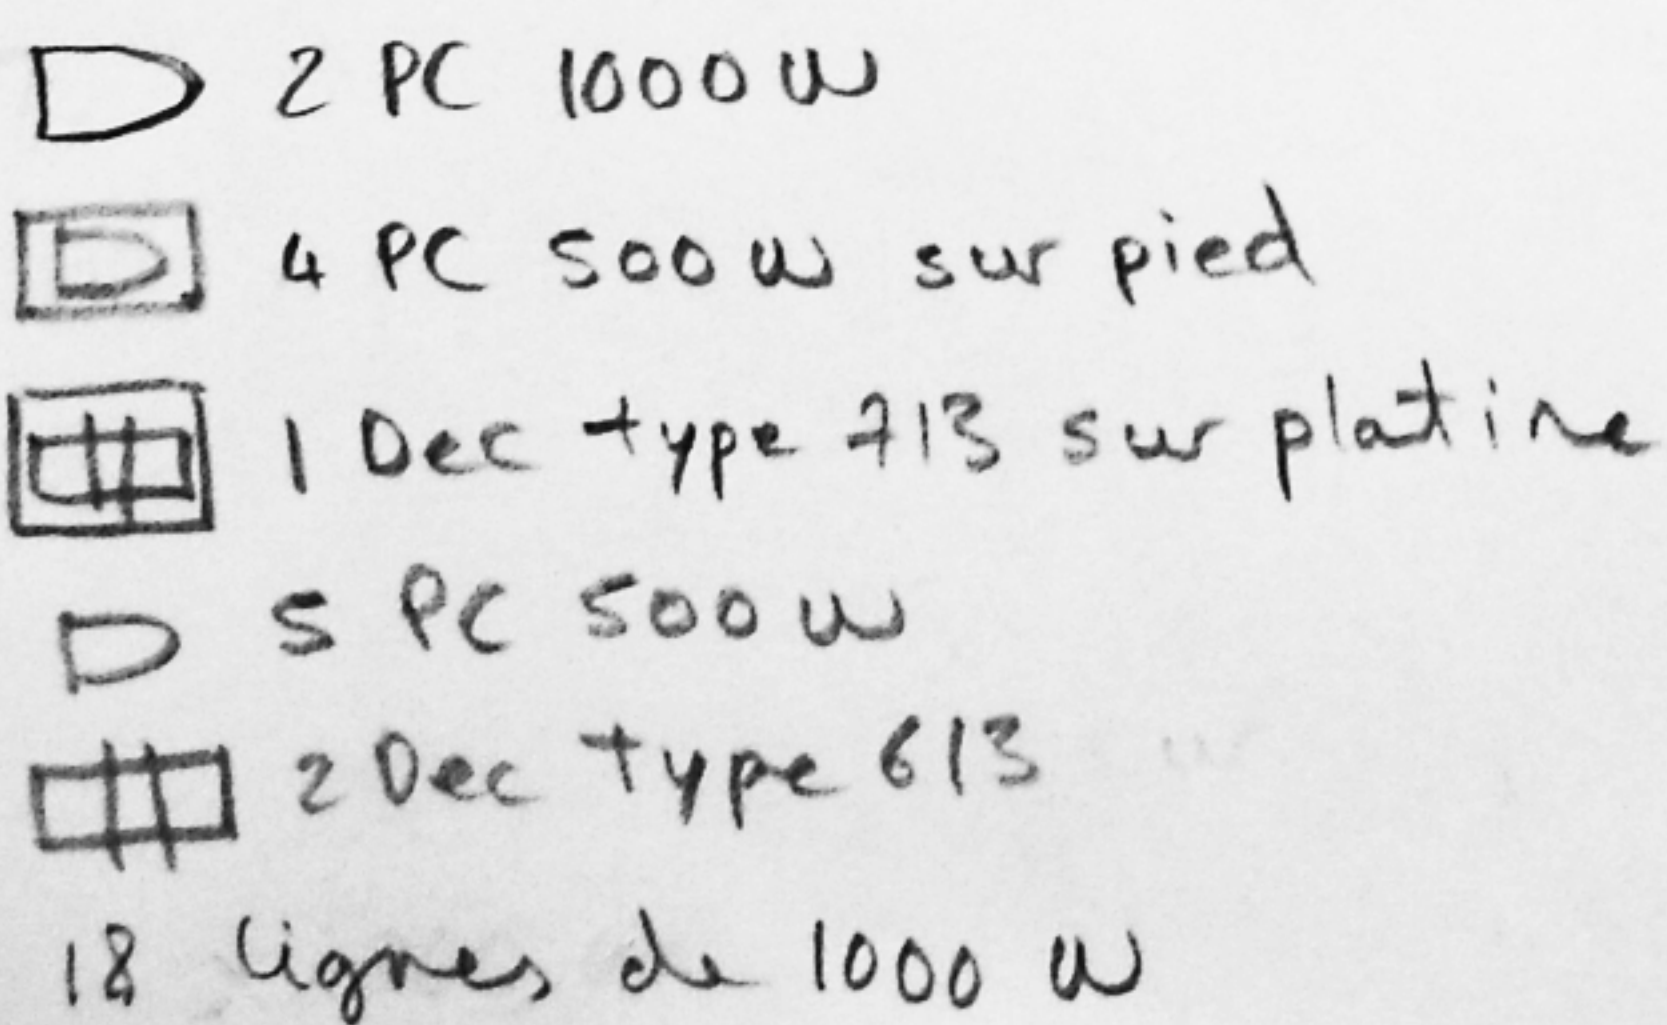 2 PC 1000 W
4 PC 500 W sur pied
1 Dec type 713 sur platine
5 PC 500 W
2 Dec type 613
18 lignes de 1000 W